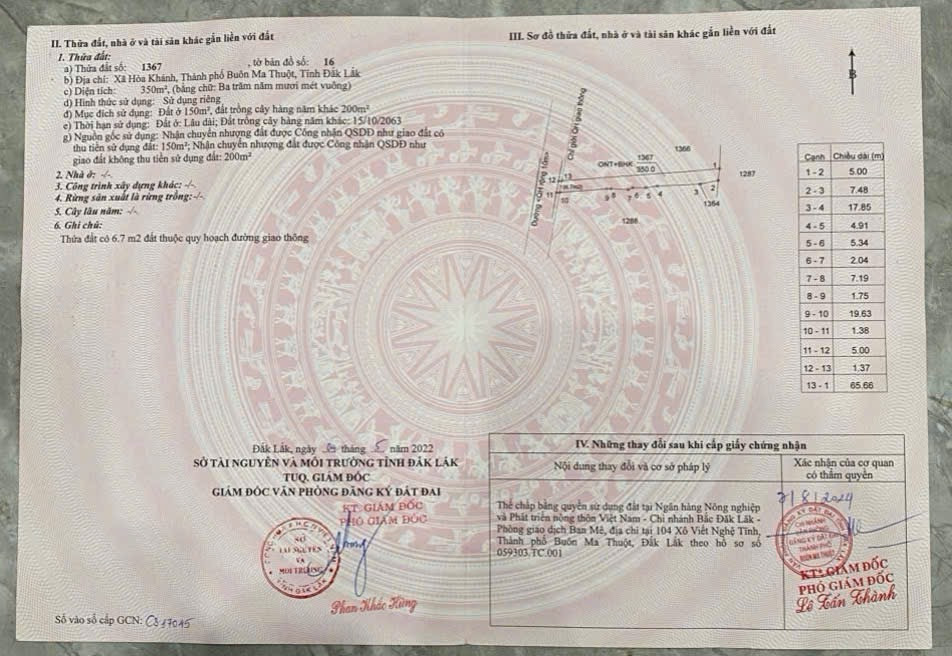 II. Thửa đất, nhà ở và tài sản khác gắn liền với đất
1. Thửa đất:
a) Thửa đất số: 1367 , tờ bản đồ số: 16
b) Địa chỉ: Xã Hòa Khánh, Thành phố Buôn Ma Thuột, Tỉnh Đắk Lắk
c) Diện tích: 350m², (bằng chữ: Ba trăm năm mươi mét vuông)
d) Hình thức sử dụng: Sử dụng riêng
đ) Mục đích sử dụng: Đất ở 150m², đất trồng cây hàng năm khác 200m²
e) Thời hạn sử dụng: Đất ở: Lâu dài; Đất trồng cây hàng năm khác: 15/10/2063
g) Nguồn gốc sử dụng: Nhận chuyển nhượng đất được Công nhận QSDĐ như giao đất có
thu tiền sử dụng đất: 150m²; Nhận chuyển nhượng đất được Công nhận QSDĐ như
giao đất không thu tiền sử dụng đất: 200m²
2. Nhà ở: -/-
3. Công trình xây dựng khác: -/-
4. Rừng sản xuất là rừng trồng:-/-
5. Cây lâu năm: -/-
6. Ghi chú:
Thửa đất có 6.7 m2 đất thuộc quy hoạch đường giao thông
Đắk Lắk, ngày tháng 5 năm 2022
SỞ TÀI NGUYÊN VÀ MÔI TRƯỜNG TỈNH ĐẮK LẮK
TUQ. GIÁM ĐỐC
GIÁM ĐỐC VĂN PHÒNG ĐĂNG KÝ ĐẤT ĐAI
KT. GIÁM ĐỐC
PHÓ GIÁM ĐỐC
SỞ
TÀI NGUYÊN
VÀ
MÔI TRƯỜNG
TỈNH ĐẮK LẮK
Phan Khắc Hùng
Số vào sổ cấp GCN: CS 37045
III. Sơ đồ thửa đất, nhà ở và tài sản khác gắn liền với đất
B
Chỉ giới QH giao thông
1366
ONT+BHK 1367
350.0
1
1287
12 13
11 10
9 8 7 6 5 4 3 2
1364
1288
Cạnh Chiều dài (m)
1 - 2 5.00
2 - 3 7.48
3 - 4 17.85
4 - 5 4.91
5 - 6 5.34
6 - 7 2.04
7 - 8 7.19
8 - 9 1.75
9 - 10 19.63
10 - 11 1.38
11 - 12 5.00
12 - 13 1.37
13 - 1 65.66
IV. Những thay đổi sau khi cấp giấy chứng nhận
Nội dung thay đổi và cơ sở pháp lý
Xác nhận của cơ quan
có thẩm quyền
Thế chấp bằng quyền sử dụng đất tại Ngân hàng Nông nghiệp
và Phát triển nông thôn Việt Nam - Chi nhánh Bắc Đắk Lắk -
Phòng giao dịch Ban Mê, địa chỉ tại 104 Xô Viết Nghệ Tĩnh,
Thành phố Buôn Ma Thuột, Đắk Lắk theo hồ sơ số
059303.TC.001
7/8/2024
CHI NHÁNH
VĂN PHÒNG
ĐĂNG KÝ ĐẤT ĐAI
THÀNH PHỐ
BUÔN MA THUỘT
KT. GIÁM ĐỐC
PHÓ GIÁM ĐỐC
Lê Tấn Thành